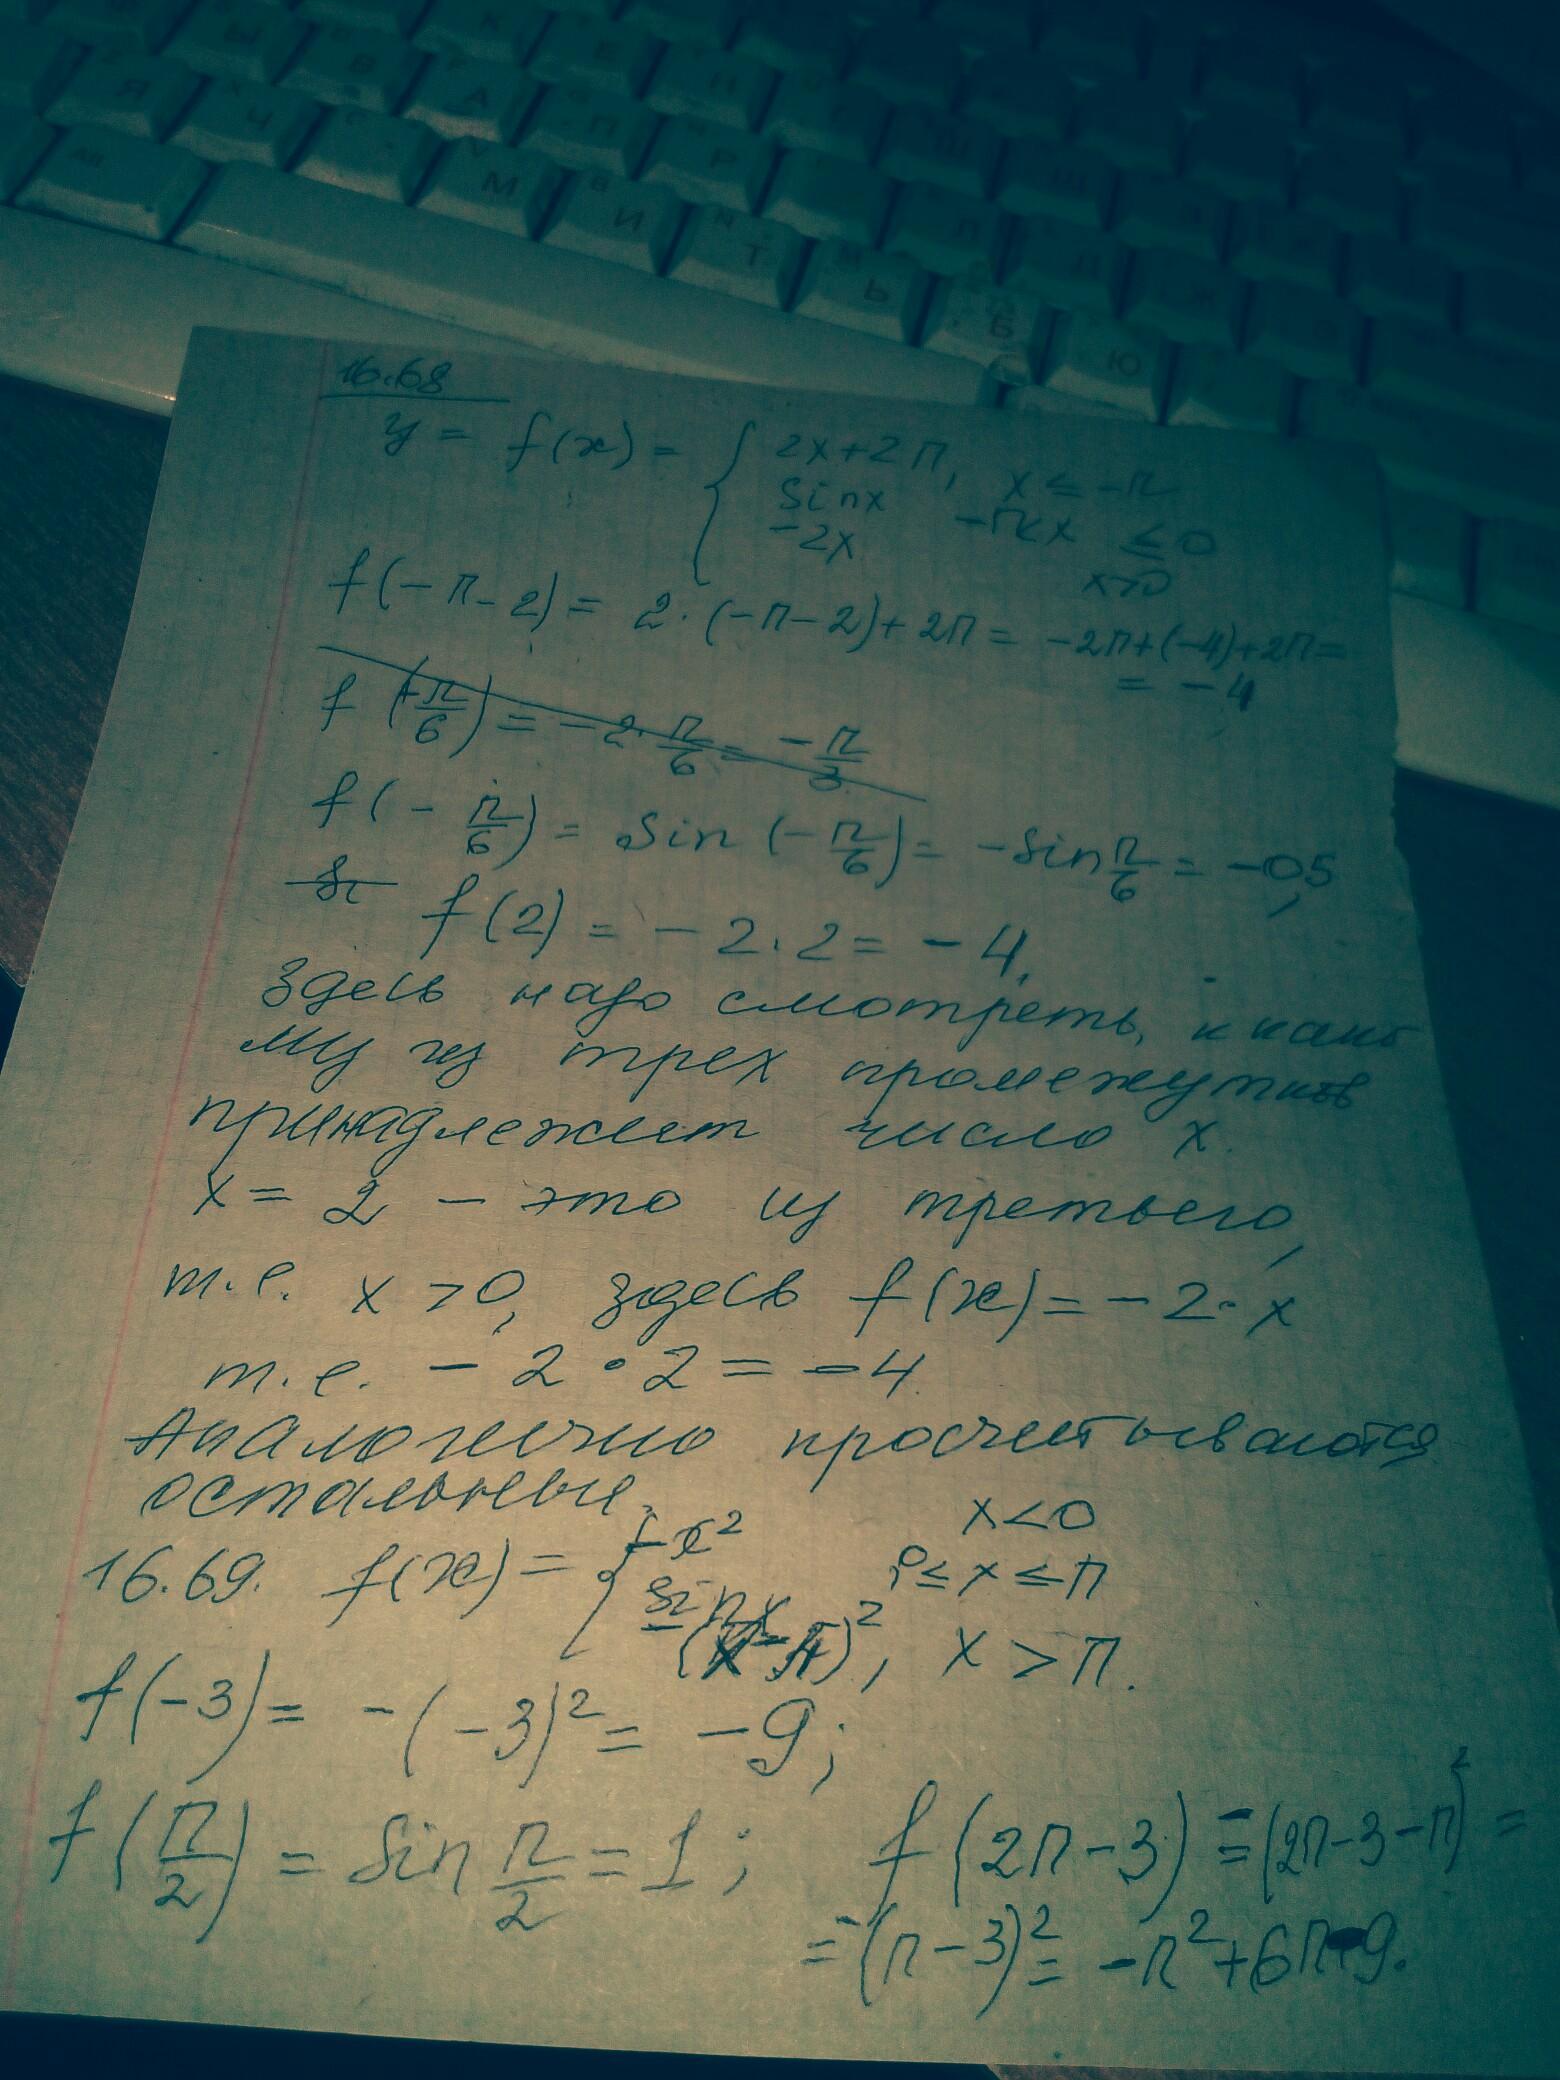 16.68
y = f(x) = { 2x+2π, x ≤ -π
sinx -π<x ≤0
-2x x>0
f(-π-2) = 2·(-π-2)+2π = -2π+(-4)+2π=
= -4
f(-π/6) = -2·π/6 = -π/3
f(-π/6) = sin(-π/6) = -sin π/6 = -0,5
f(2) = -2·2 = -4.
Здесь надо смотреть, к како
му из трех промежутков
принадлежит число x.
x = 2 - это из третьего,
т.е. x >0, здесь f(x) = -2·x
т.е. -2·2 = -4.
Аналогично просчитываются
остальные.
16.69. f(x) = { -x² x<0
sinx, 0≤x≤π
-(x-π)², x>π.
f(-3) = -(-3)² = -9;
f(π/2) = sin π/2 = 1; f(2π-3) = -(2π-3-π)² =
= -(π-3)² = -π²+6π-9.
Я Ч М И Т Ь Б Ю
Ы В А П Р
К Е Н
Alt